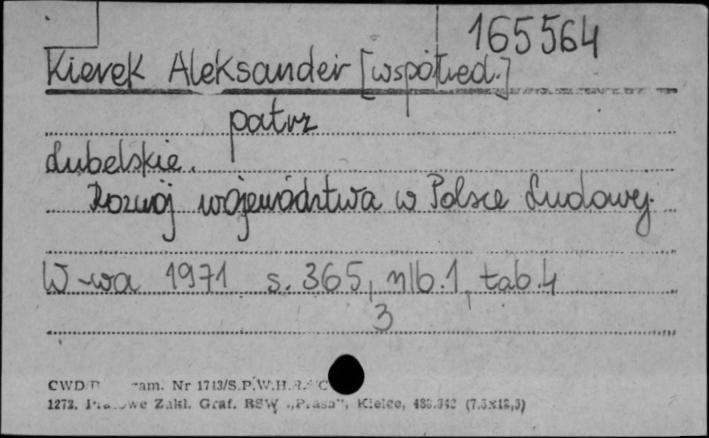 165564
Kierek Aleksander [współred.]
patrz
Lubelskie.
Rozwój województwa w Polsce Ludowej.
W-wa 1971 s. 365, nlb. 1, tab. 4
3
CWD zam. Nr 1713/S.P.W.H.
1272. Zakł. Graf. RSW „Prasa", Kielce, (7,5x12,5)